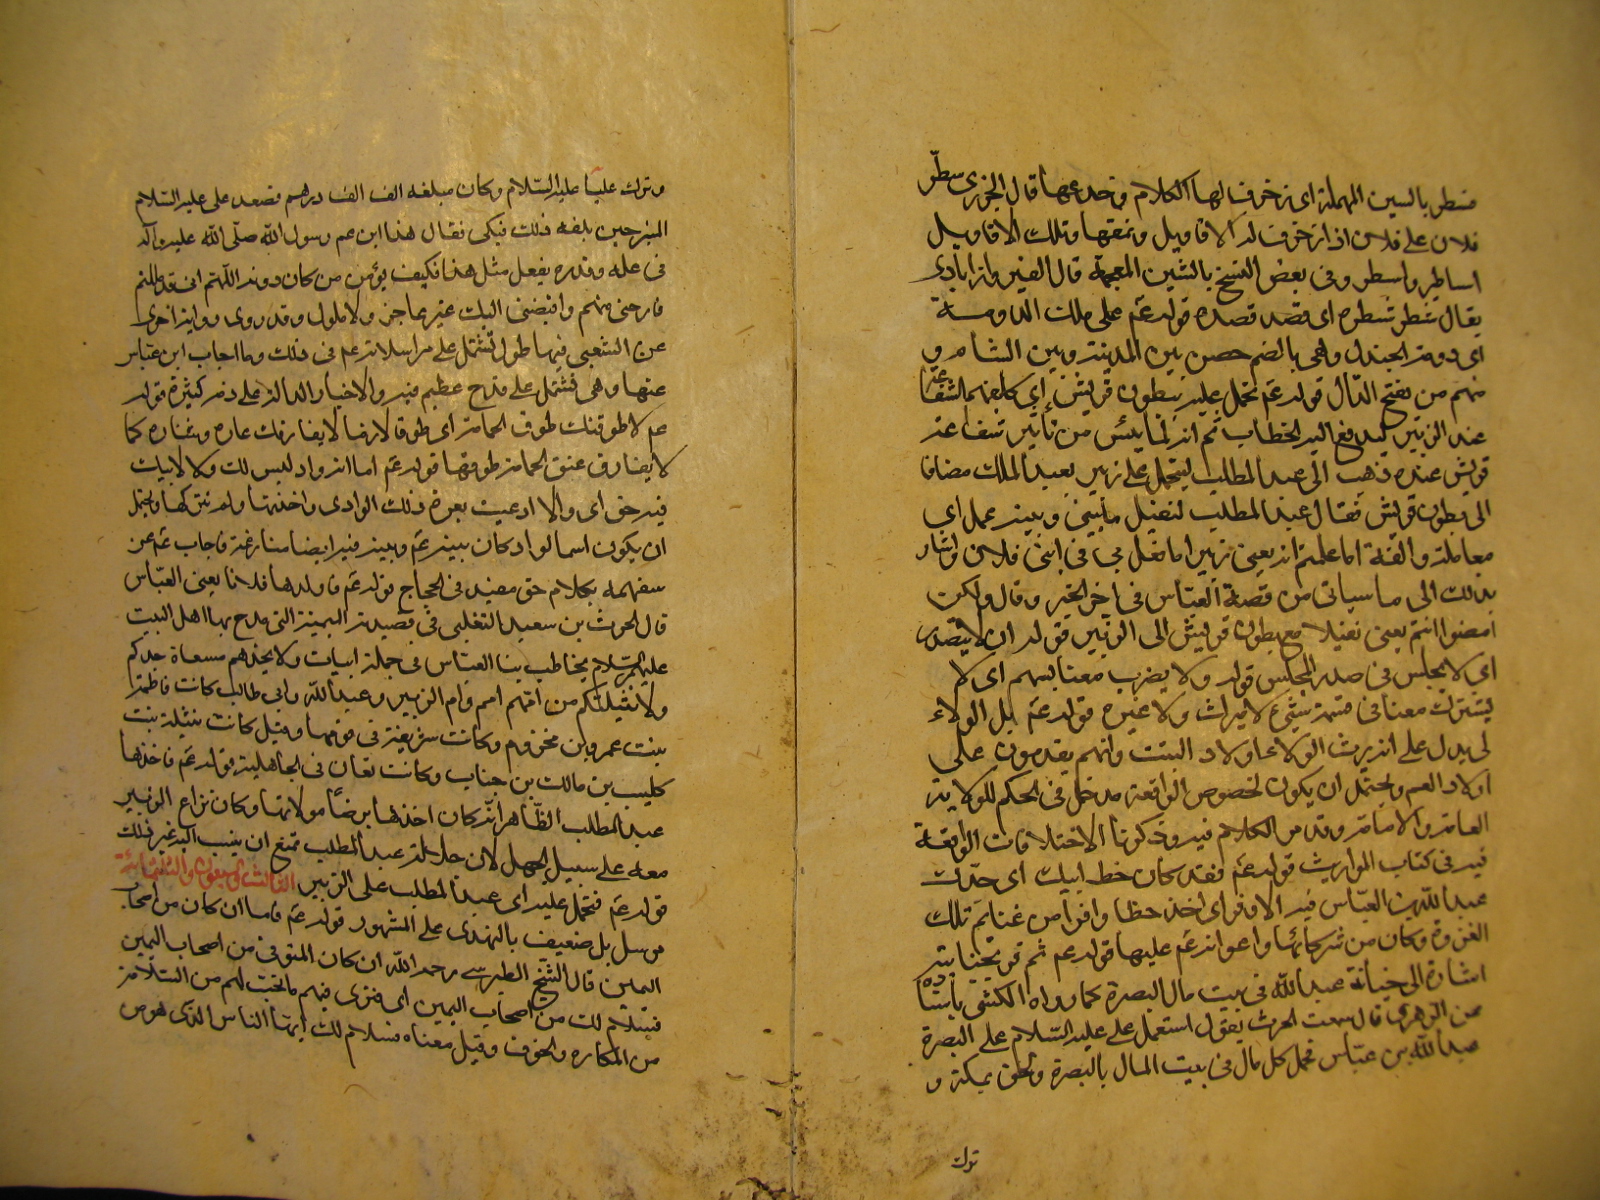 فسطر بالسين المهملة اى زخرف لها الكلام وخدعها قال الجزرى سطّر
فلان على فلان اذا زخرف له الاقاويل ونمقها وتلك الاقاويل
اساطير واسطر وفى بعض النسخ بالشين المعجمة قال الفيروزابادى
يقال شطر شطره اى قصد قصده قوله عم على ملك الدومة
اى دومة الجندل وهى بالضم حصن بين المدينة وبين الشام و
منهم من يفتح الدال قوله عم تحمل عليه ببطون قريش اى كلفهم الشفاعة
عند الزبير ليدفع اليه الخطاب ثم انه لما يئس من تأثير شفاعة
قريش عنده ذهب الى عبد المطلب ليتحمل على زبير بعبد الملك مضافا
الى بطون قريش فقال عبد المطلب لنفيل ما بينى وبينه عمل اى
معاملة والفة اما علمتم انه يعنى زبير اما فعل بى فى ابنى فلان واشار
بذلك الى ما سياتى من قصة العباس فى اخر الخبر وقال ولكن
امضوا انتم يعنى نفيلا مع بطون قريش الى الزبير قوله ان لا يتصدر
اى لا يجلس فى صدر المجلس قوله ولا يضرب معنا بسهم اى لا
يشترك معنا فى قسمة شئ لا ميراث ولا غيره قوله عم بل الولاء
لى يدل على انه يرث الولاء اولاد البنت وانهم يقدمون على
اولاد العم ويحتمل ان يكون لخصوص الواقعة مدخل فى الحكم للولاية
العامة والامامة وقد مر الكلام فيه وذكرنا الاختلافات الواقعة
فيه فى كتاب المواريث قوله عم فقد كان خط ابيك اى جدك
عبد الله بن العباس فيه الاوفر اى اخذ حظا وافرا من غنائم تلك
الغزوة وكان من شركائها واعوانه عم عليها قوله عم ثم فر بخيانته
اشارة الى خيانة عبد الله فى بيت مال البصرة كما رواه الكشى باسناده
عن الزهرى قال سمعت الحرث يقول استعمل على عليه السلام على البصرة
عبد الله بن عباس فحمل كل مال فى بيت المال بالبصرة ولحق بمكة و
ترك
وترك عليا عليه السلام وكان مبلغه الف الف درهم فصعد على عليه السلام
المنبر حين بلغه ذلك فبكى فقال هذا ابن عم رسول الله صلى الله عليه وآله
فى علمه وقدره يفعل مثل هذا فكيف يؤمن من كان دونه اللهم انى قد مللتهم
فارحنى منهم واقبضنى اليك غير عاجز ولا ملول وقد روى رواية اخرى
عن الشعبى فيها طول تشتمل على مراسلاته عم فى ذلك وما اجاب ابن عباس
عنها وهى تشتمل على قدح عظيم فيه والاخبار الدالة على ذمه كثيرة قوله
عم لاطوقنك طوق الحمامة اى طوقا لازما لا يفارقك عاره وشناره كما
لا يفارق عنق الحمامة طوقها قوله عم اما انه واد ليس لك ولا لابيك
فيه حق اى والا ادعيت بعرة ذلك الوادى واخذتها ولم تتركها ويحتمل
ان يكون اسما لواد كان بينه عم وبينه فيه ايضا منازعة فاجاب عم عن
سفهه بكلام حق مفيد فى الحجاج قوله عم فاولدها فلانا يعنى العباس
قال الحرث بن سعيد التغلبى فى قصيدته الميمية التى مدح بها اهل البيت
عليهم السلام يخاطب بنا العباس فى جملة ابيات ولا يجدهم مسعاة جدكم
ولا نثيلتكم من امهم امم وام الزبير وعبد الله وابى طالب كانت فاطمة
بنت عمرو بن مخزوم وكانت شريفة فى قومها وقيل كانت نثيلة بنت
كليب بن مالك بن جناب وكانت تعان فى الجاهلية قوله عم فاخذها
عبد المطلب الظاهر انه كان اخذها برضا مولاتها وكان نزاع الزبير
معه على سبيل الجهل لان جلالة عبد المطلب تمنع ان ينسب اليه غير ذلك
قوله عم فتحمل عليه اى عبد المطلب على الزبير الثالث والسبعون والثلثمائة
مرسل بل ضعيف بالنهدى على المشهور قوله عم فاما ان كان من اصحاب
اليمين قال الشيخ الطبرسى رحمه الله ان كان المتوفى من اصحاب اليمين
فسلام لك من اصحاب اليمين اى فترى فيهم ما تحب لهم من السلامة
من المكاره والخوف وقيل معناه فسلام لك ايها الناس الذى هو من